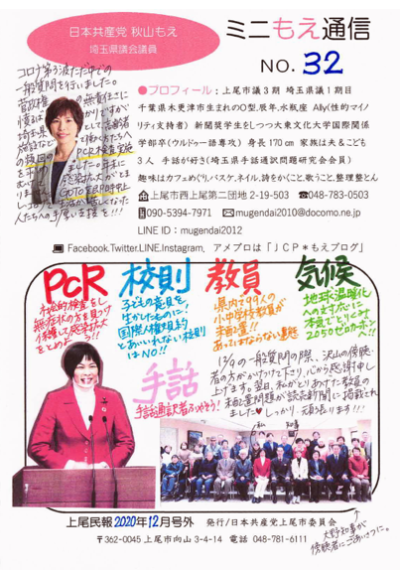 日本共産党 秋山もえ
埼玉県議会議員
ミニもえ通信
NO. 32
コロナ第3波ただ中での
一般質問を行いました。
●プロフィール：上尾市議3期 埼玉県議1期目
千葉県木更津市生まれのO型、辰年、水瓶座 Ally(性的マイノ
リティ支持者) 新聞奨学生をしつつ大東文化大学国際関係
学部卒(ウルドゥー語専攻) 身長170cm 家族は夫&こども
3人 手話が好き(埼玉県手話通訳問題研究会会員)
趣味はカフェめぐり、バスケ、ネイル、詩をかくこと、歌うこと、整理整とん
上尾市西上尾第二団地2-19-503 ☎048-783-0503
090-5394-7971 mugendai2010@docomo.ne.jp
LINE ID：mugendai2012
Facebook.Twitter.LINE.Instagram、アメブロは「JCP＊もえブログ」
PCR 校則 教員 気候
社会的検査をし
無症状の方を見つけ
保護して感染拡大
をとめよう!!
子どもの意見を
生かすために、
国際人権規約
とあいいれない校則
はNO!!
県内で99人の
小中学校教員が
未配置!!
あってはならない事態
地球温暖化
への対応に
本気でとりくみ
2050ゼロカーボン!!
手話
手話通訳者ふやそう!
12/9の一般質問の際、沢山の傍聴
者の方がかけつけて下さり、心から感謝申し
上げます。翌日、私がとりあげた教員の
未配置問題が読売新聞に掲載され
ました♥ しっかり、元気に頑張ります!!!
私 知事
大野知事が
傍聴者にごあいさつに。
上尾民報2020年12月号外 発行/日本共産党上尾市委員会
〒362-0045 上尾市向山3-4-14 電話 048-781-6111